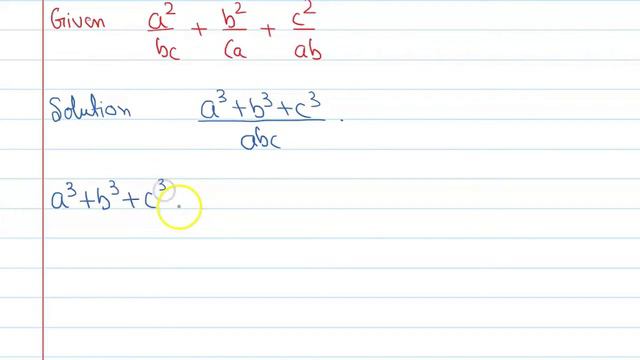 Given a²/bc + b²/ca + c²/ab
Solution a³+b³+c³/abc .
a³+b³+c³